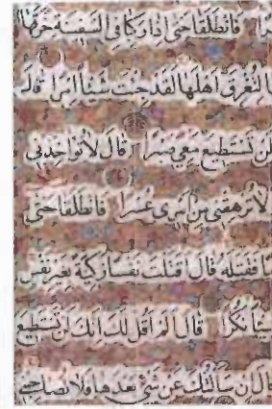 فانطلقا حتى اذا ركبا فى السفينة خرقها
لتغرق اهلها لقد جئت شيئا امرا قال
لن تستطيع معى صبرا قال لا تؤاخذنى
لا ترهقنى من امرى عسرا فانطلقا حتى
فقتله قال اقتلت نفسا زكية بغير نفس
شيئا نكرا قال الم اقل لك انك لن تستطيع
ال ان سألتك عن شئ بعدها فلا تصاحبنى